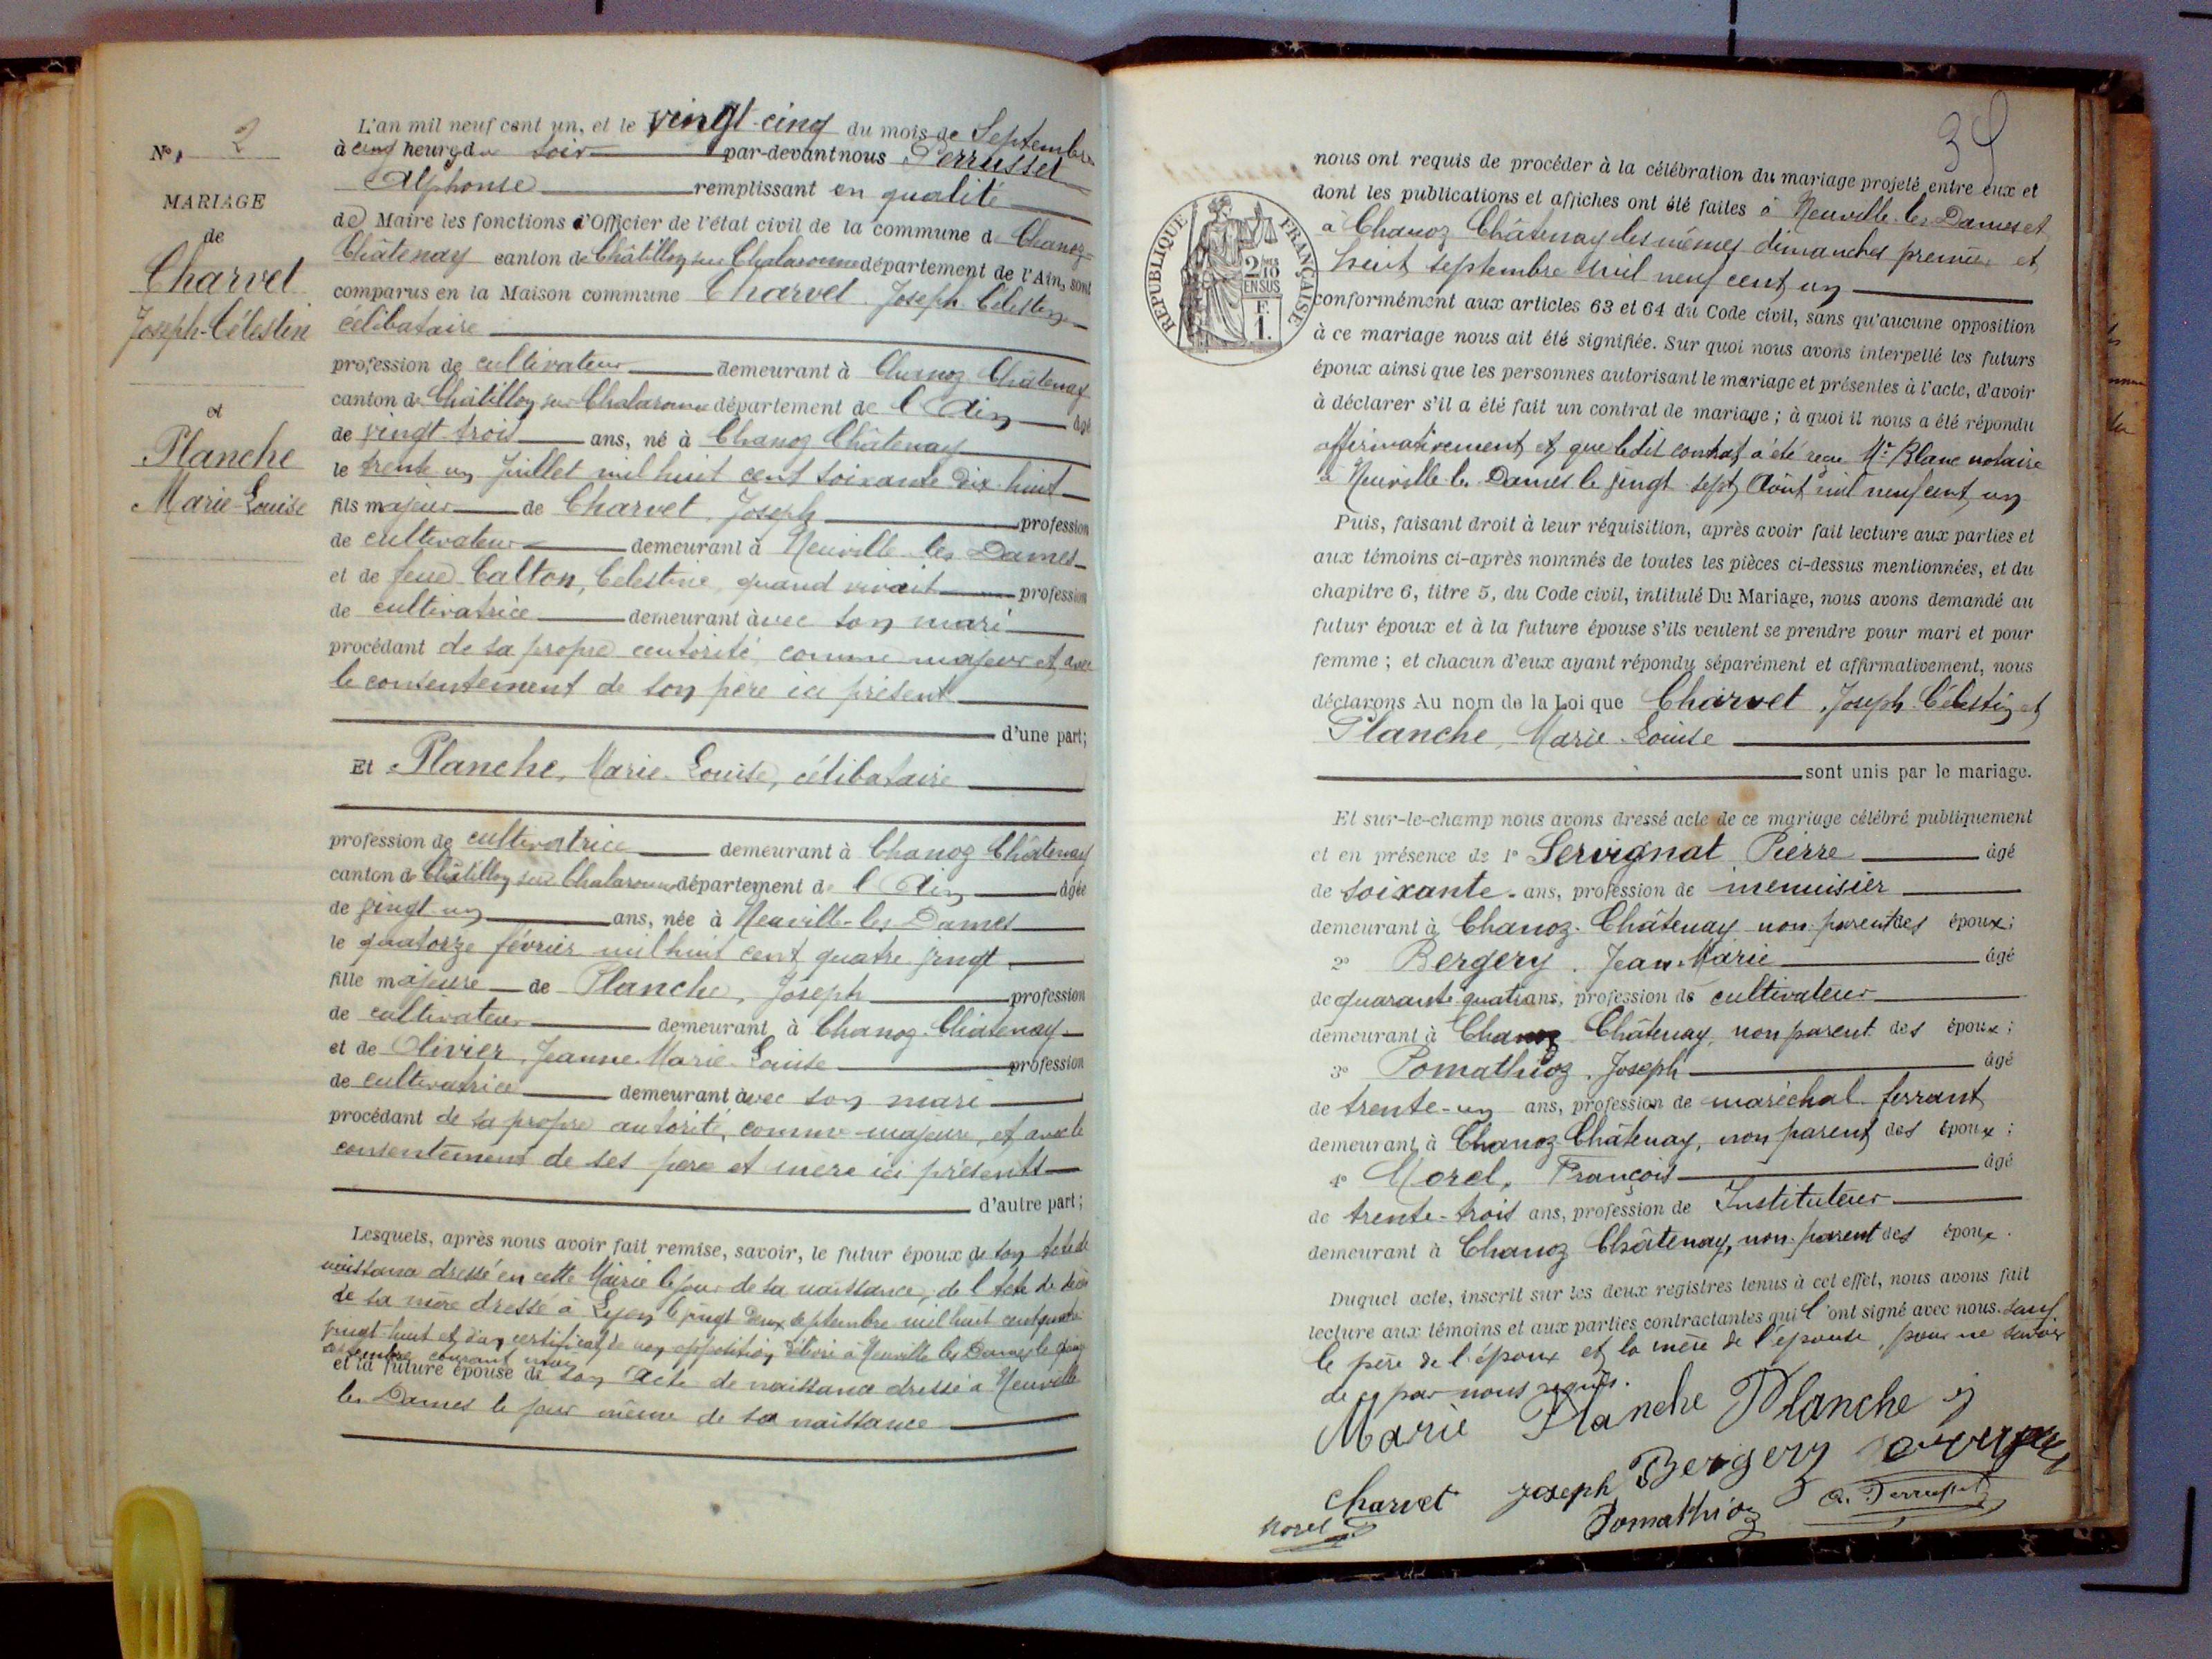 N° 2
MARIAGE
de
Charvet
Joseph-Célestin
et
Planche
Marie-Louise
L'an mil neuf cent un, et le vingt-cinq du mois de Septembre
à cinq heures du soir par-devant nous Perrusset
Alphonse remplissant en qualité
de Maire les fonctions d'Officier de l'état civil de la commune de Chanoz-
Châtenay canton de Châtillon sur Chalaronne département de l'Ain, sont
comparus en la Maison commune Charvet Joseph Célestin
célibataire
profession de cultivateur demeurant à Chanoz Châtenay
canton de Châtillon sur Chalaronne département de l'Ain âgé
de vingt-trois ans, né à Chanoz Châtenay
le trente un Juillet mil huit cent soixante dix-huit
fils majeur de Charvet, Joseph profession
de cultivateur demeurant à Neuville les Dames
et de feue Calton, Célestine, quand vivait profession
de cultivatrice demeurant avec son mari
procédant de sa propre autorité, comme majeur et avec
le consentement de son père ici présent
d'une part;
Et Planche, Marie-Louise, célibataire
profession de cultivatrice demeurant à Chanoz Châtenay
canton de Châtillon sur Chalaronne département de l'Ain âgée
de vingt-un ans, née à Neuville-les-Dames
le quatorze février mil huit cent quatre vingt
fille majeure de Planche, Joseph profession
de cultivateur demeurant à Chanoz-Châtenay
et de Olivier, Jeanne-Marie-Louise profession
de cultivatrice demeurant avec son mari
procédant de sa propre autorité, comme majeure, et avec le
consentement de ses père et mère ici présents
d'autre part;
Lesquels, après nous avoir fait remise, savoir, le futur époux de son acte de
naissance dressé en cette Mairie le jour de sa naissance, de l'acte de décès
de sa mère dressé à Lyon le vingt deux septembre mil huit cent quatre
vingt-huit et d'un certificat de non opposition délivré à Neuville les Dames le
septembre courant mois
et la future épouse de son acte de naissance dressé à Neuville
les Dames le jour même de sa naissance
39
RÉPUBLIQUE FRANÇAISE
2/10
EN SUS
F.
1.
nous ont requis de procéder à la célébration du mariage projeté entre eux et
dont les publications et affiches ont été faites à Neuville-les-Dames et
à Chanoz Châtenay les mêmes dimanches premier et
huit septembre mil neuf cent un
conformément aux articles 63 et 64 du Code civil, sans qu'aucune opposition
à ce mariage nous ait été signifiée. Sur quoi nous avons interpellé les futurs
époux ainsi que les personnes autorisant le mariage et présentes à l'acte, d'avoir
à déclarer s'il a été fait un contrat de mariage; à quoi il nous a été répondu
affirmativement et que ledit contrat a été reçu Me Blanc notaire
à Neuville-les-Dames le vingt-sept Août mil neuf cent un
Puis, faisant droit à leur réquisition, après avoir fait lecture aux parties et
aux témoins ci-après nommés de toutes les pièces ci-dessus mentionnées, et du
chapitre 6, titre 5, du Code civil, intitulé Du Mariage, nous avons demandé au
futur époux et à la future épouse s'ils veulent se prendre pour mari et pour
femme; et chacun d'eux ayant répondu séparément et affirmativement, nous
déclarons Au nom de la Loi que Charvet, Joseph-Célestin et
Planche, Marie-Louise
sont unis par le mariage.
Et sur-le-champ nous avons dressé acte de ce mariage célébré publiquement
et en présence de 1° Servignat Pierre âgé
de soixante ans, profession de menuisier
demeurant à Chanoz-Châtenay non parent des époux;
2° Bergery, Jean-Marie âgé
de quarante quatre ans, profession de cultivateur
demeurant à Chanoz Châtenay, non parent des époux;
3° Pomathioz, Joseph âgé
de trente-un ans, profession de maréchal-ferrant
demeurant à Chanoz-Châtenay, non parent des époux;
4° Morel, François âgé
de trente-trois ans, profession de Instituteur
demeurant à Chanoz Châtenay, non parent des époux.
Duquel acte, inscrit sur les deux registres tenus à cet effet, nous avons fait
lecture aux témoins et aux parties contractantes qui l'ont signé avec nous, sauf
le père de l'époux et la mère de l'épouse, pour ne savoir
de ce par nous requis.
Marie Planche Planche j
Charvet Joseph Bergery
Morel Pomathioz A. Perrusset